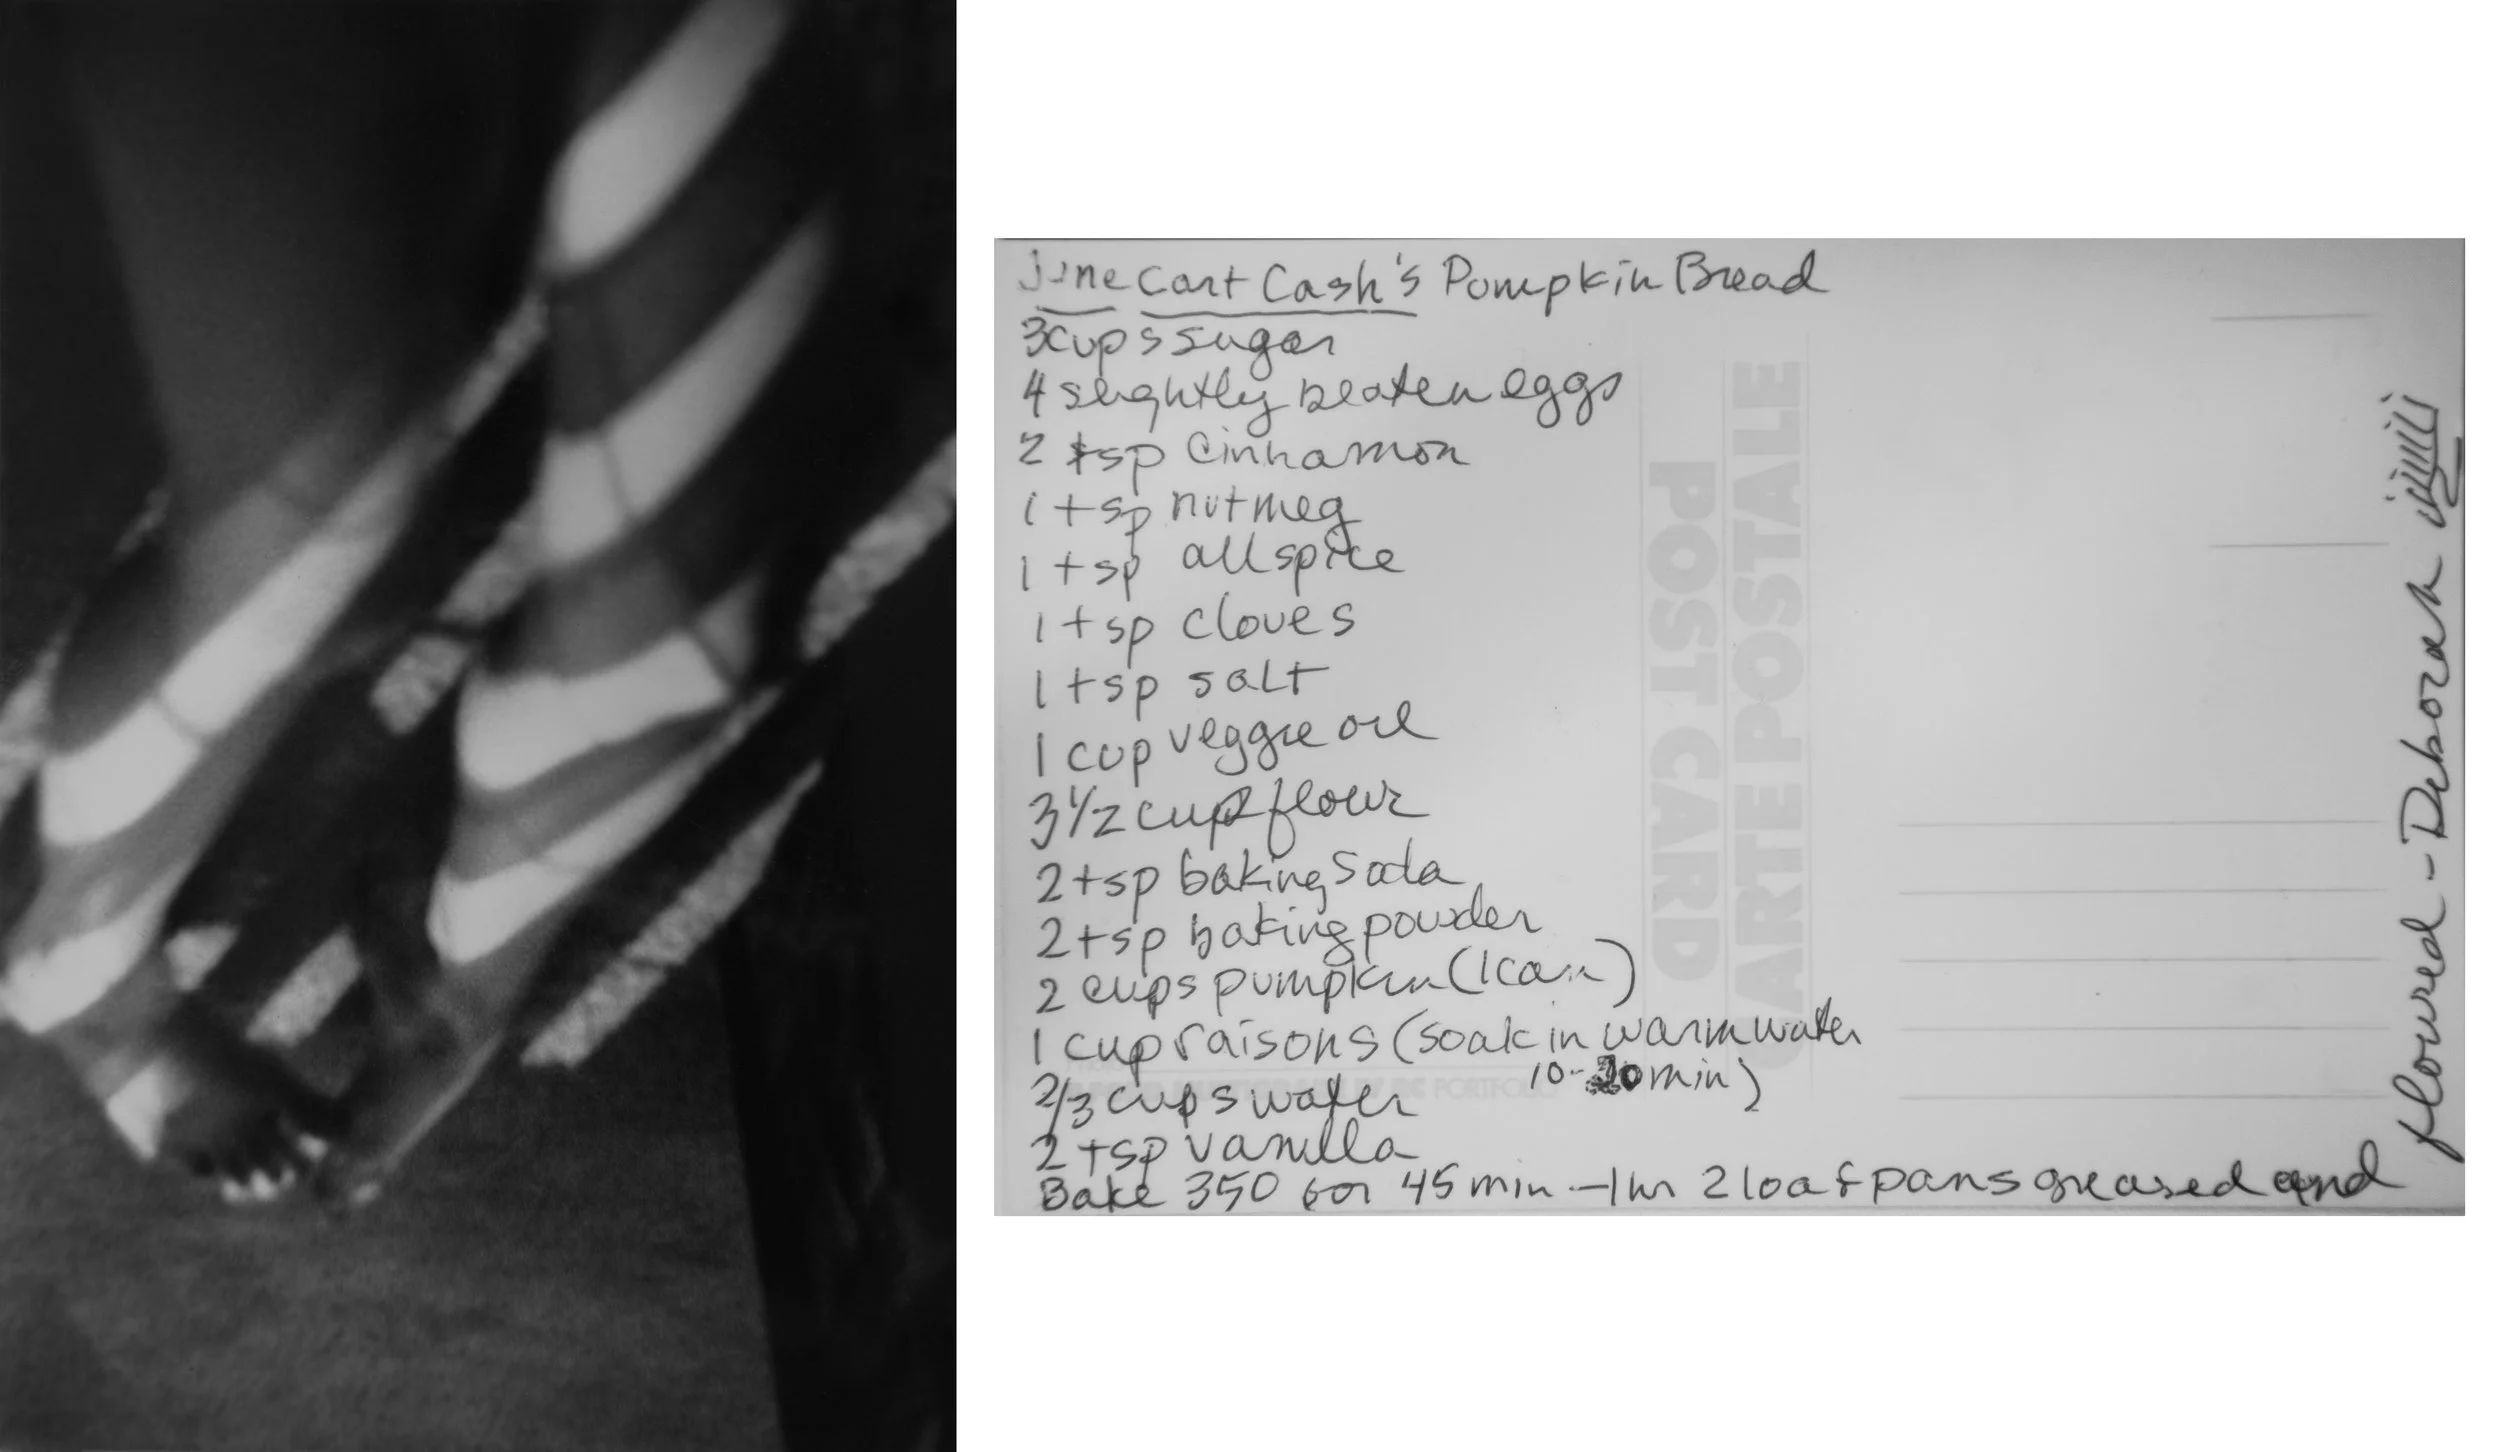 June Cart Cash's Pumpkin Bread
3cups sugar
4 slightly beaten eggs
2 tsp cinnamon
1 tsp nutmeg
1 tsp allspice
1 tsp cloves
1 tsp salt
1 cup veggie oil
3 1/2 cups flour
2 tsp baking soda
2 tsp baking powder
2 cups pumpkin (1 can)
1 cup raisons (soak in warm water
10-20 min)
2/3 cups water
2 tsp vanilla
Bake 350 for 45 min - 1 hr 2 loaf pans greased and
floured - Deborah
POST CARD
CARTE POSTALE
PORTFOLIO